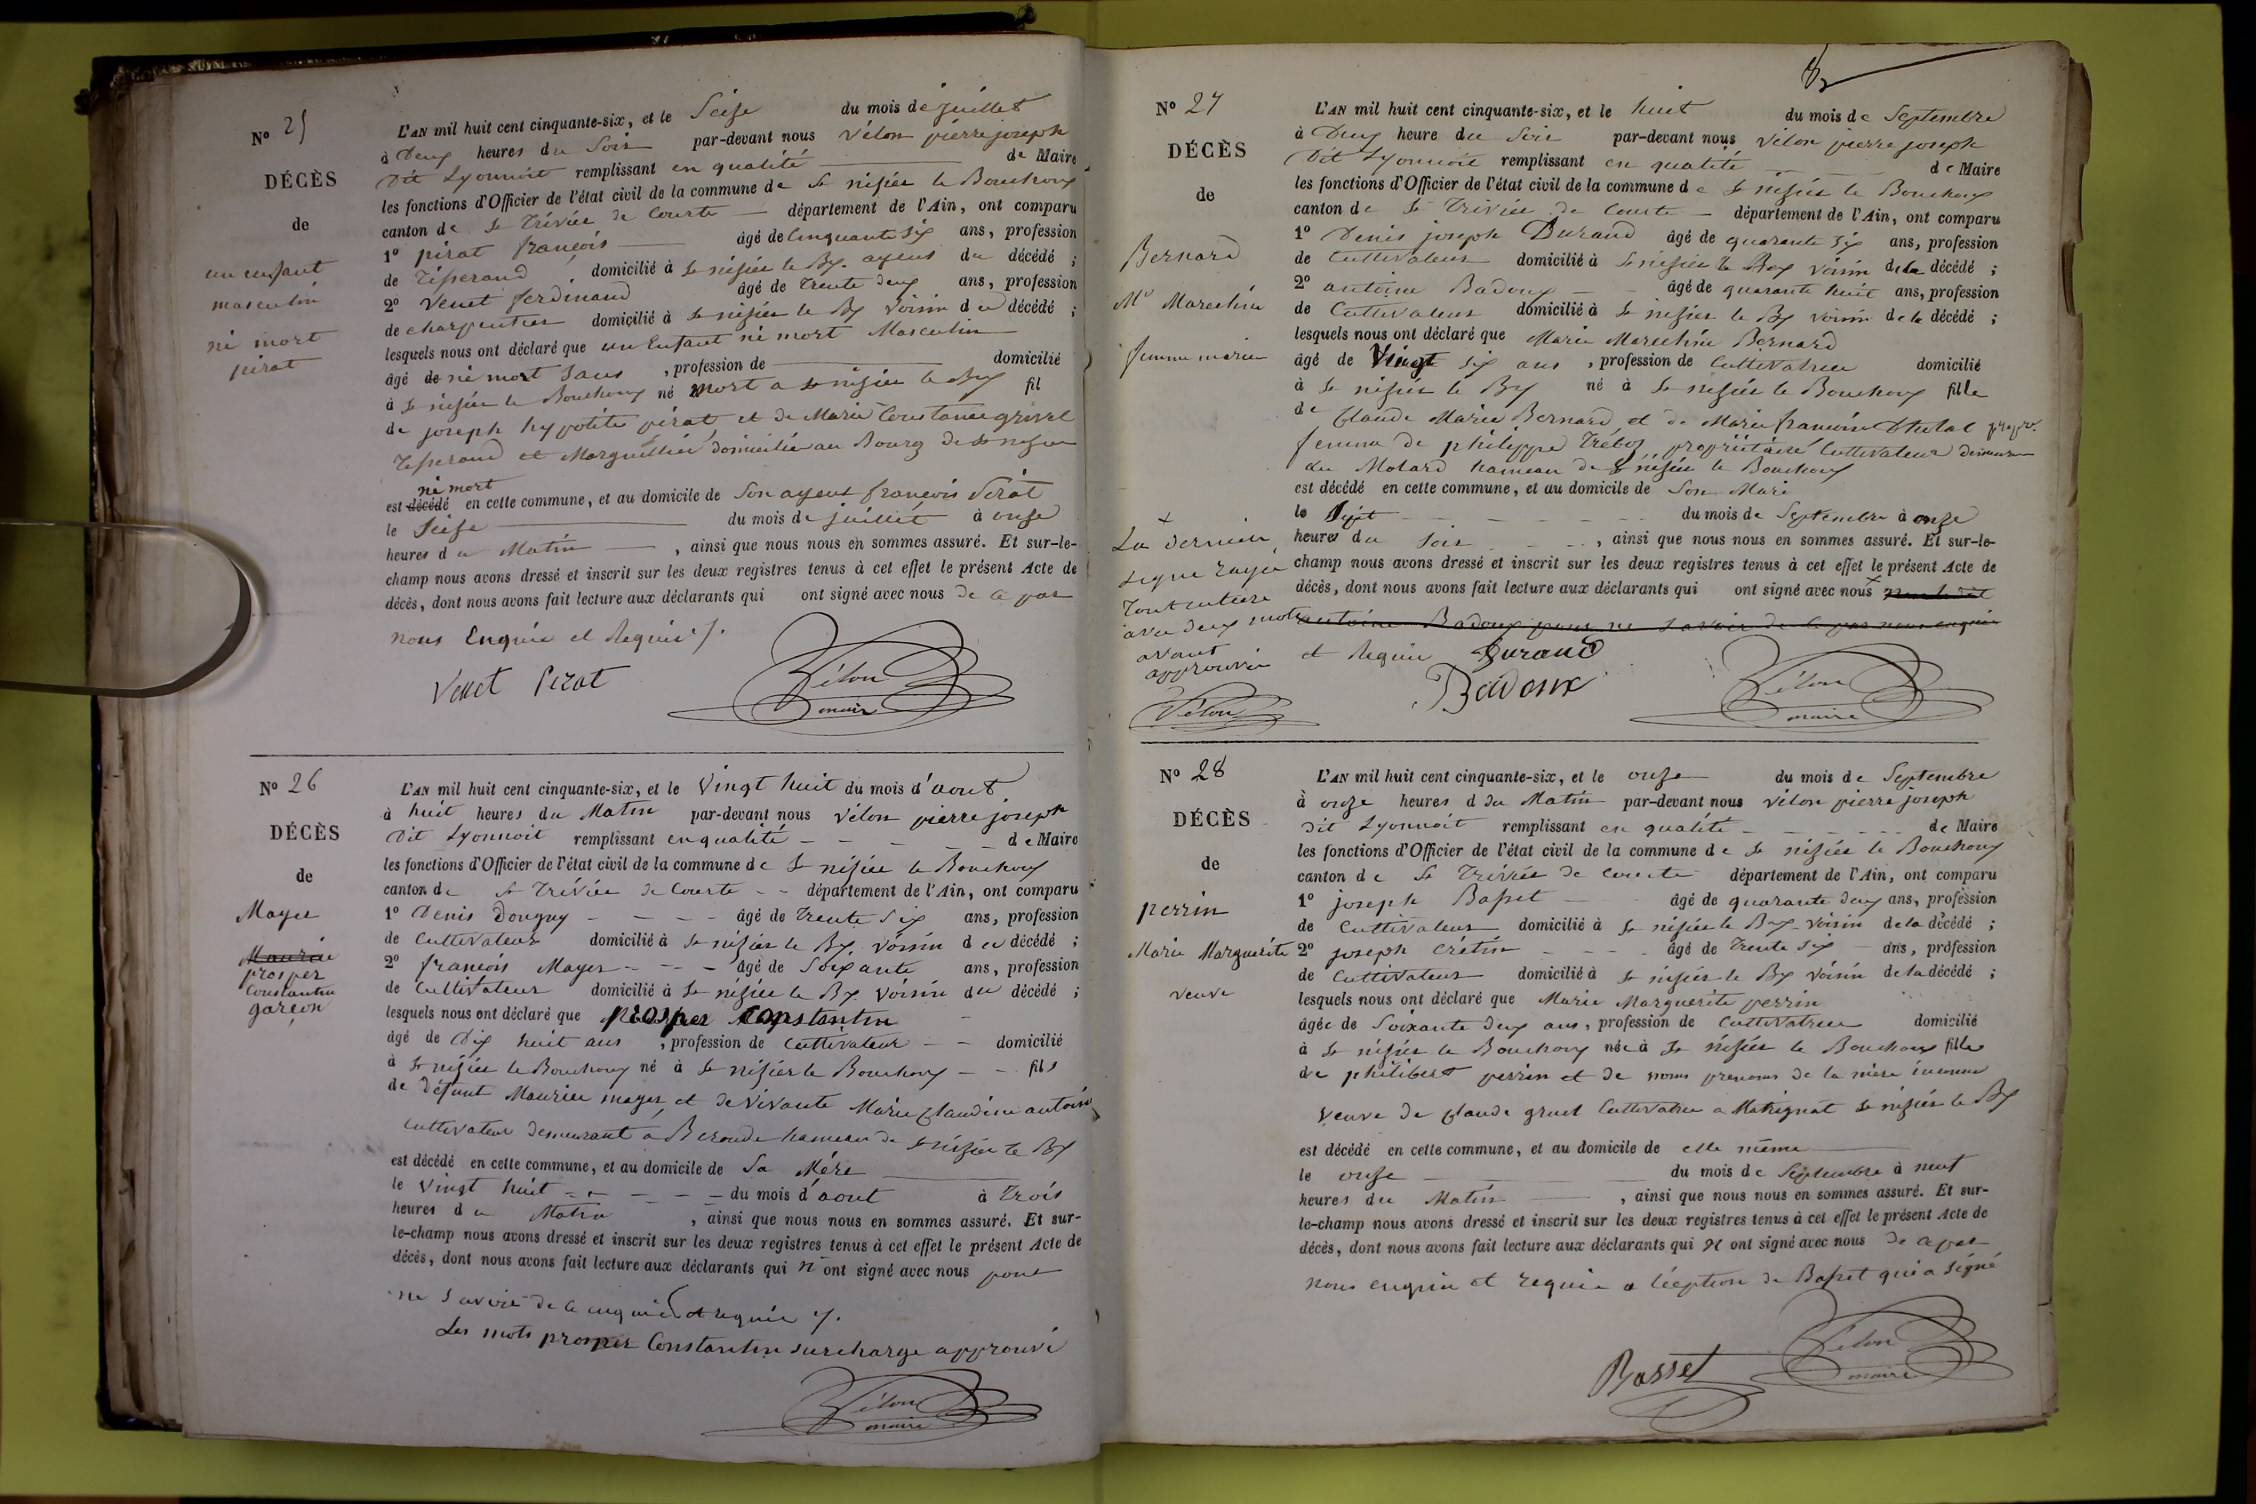 N° 25
DÉCÈS
de
un enfant
masculin
né mort
pirat
L'AN mil huit cent cinquante-six, et le Seize du mois de juillet
à Deux heures du Soir par-devant nous vélon pierre joseph
Dit Lyonnoit remplissant en qualité de Maire
les fonctions d'Officier de l'état civil de la commune de St nizier le Bouchoux
canton de St Trivier de Courte département de l'Ain, ont comparu
1° pirat françois âgé de Cinquante six ans, profession
de Tisserand domicilié à St nizier le Bx. ayeul du décédé ;
2° Venet ferdinand âgé de trente deux ans, profession
de charpentier domicilié à St nizier le Bx voisin du décédé ;
lesquels nous ont déclaré que un Enfant né mort Masculin
âgé de né mort Sans , profession de domicilié
à St nizier le Bouchoux né mort a St nizier le Bx fil
de joseph hypolite pirat et de Marie Constance grivel
Tisserand et Marguillier domicilié au Bourg de St nizier
né mort
est décédé en cette commune, et au domicile de Son ayeul françois Pirat
le Seize du mois de juillet à onze
heures du Matin , ainsi que nous nous en sommes assuré. Et sur-le-
champ nous avons dressé et inscrit sur les deux registres tenus à cet effet le présent Acte de
décès, dont nous avons fait lecture aux déclarants qui ont signé avec nous de ce par
nous Enquis et Requis /.
Venet Pirat Vélon
maire
N° 26
DÉCÈS
de
Mayer
Maurice
prosper
Constantin
garçon
L'AN mil huit cent cinquante-six, et le Vingt huit du mois d'aout
à huit heures du Matin par-devant nous vélon pierre joseph
Dit Lyonnoit remplissant en qualité de Maire
les fonctions d'Officier de l'état civil de la commune de St nizier le Bouchoux
canton de St Trivier de Courte département de l'Ain, ont comparu
1° Denis Donguy âgé de Trente Six ans, profession
de Cultivateur domicilié à St nizier le Bx voisin du décédé ;
2° françois Mayer âgé de Soixante ans, profession
de Cultivateur domicilié à St nizier le Bx voisin du décédé ;
lesquels nous ont déclaré que prosper Constantin
âgé de Dix huit ans , profession de Cultivateur domicilié
à St nizier le Bouchoux né à St nizier le Bouchoux fils
de Défunt Maurice mayer et de Vivante Marie Claudine antoine
Cultivateur demeurant à Beronde hameau de St nizier le Bx
est décédé en cette commune, et au domicile de Sa Mére
le Vingt huit du mois d'aout à trois
heures du Matin , ainsi que nous nous en sommes assuré. Et sur-
le-champ nous avons dressé et inscrit sur les deux registres tenus à cet effet le présent Acte de
décès, dont nous avons fait lecture aux déclarants qui n ont signé avec nous pour
ne Savoir de ce enquis et requis /.
Les mots prosper Constantin surcharge approuvé
Vélon
maire
N° 27
DÉCÈS
de
Bernard
Me Marechin
femme marier
L'AN mil huit cent cinquante-six, et le huit du mois de Septembre
à Deux heure du Soir par-devant nous vélon pierre joseph
Dit Lyonnoit remplissant en qualité de Maire
les fonctions d'Officier de l'état civil de la commune de St nizier le Bouchoux
canton de St Trivier de Courte département de l'Ain, ont comparu
1° Denis joseph Durand âgé de quarante six ans, profession
de Cultivateur domicilié à St nizier le Bx voisin de la décédé ;
2° antoine Badoux âgé de quarante huit ans, profession
de Cultivateur domicilié à St nizier le Bx voisin de la décédé ;
lesquels nous ont déclaré que Marie Marechin Bernard
âgé de Vingt six ans , profession de Cultivatrice domicilié
à St nizier le Bx né à St nizier le Bouchoux fille
de Claude Marie Bernard et de Marie françoise
femme de philippe Tréboz propriétaire Cultivateur demeurant
au Molard hameau de St nizier le Bouchoux
est décédé en cette commune, et au domicile de Son Mari
le Sept du mois de Septembre à onze
heures du Soir , ainsi que nous nous en sommes assuré. Et sur-le-
champ nous avons dressé et inscrit sur les deux registres tenus à cet effet le présent Acte de
décès, dont nous avons fait lecture aux déclarants qui ont signé avec nous
antoine Badoux pour ne Savoir de ce par nous enquis
et Requis Durand
Badoux Vélon
maire
La derniere
Ligne rayée
Tout entiere
avec deux mots
avant
approuvée
Vélon
N° 28
DÉCÈS
de
perrin
Marie Marguerite
veuve
L'AN mil huit cent cinquante-six, et le onze du mois de Septembre
à onze heures d du Matin par-devant nous vélon pierre joseph
Dit Lyonnoit remplissant en qualité de Maire
les fonctions d'Officier de l'état civil de la commune de St nizier le Bouchoux
canton de St Trivier de Courte département de l'Ain, ont comparu
1° joseph Basset âgé de quarante deux ans, profession
de Cultivateur domicilié à St nizier le Bx voisin de la décédé ;
2° joseph Crétin âgé de Trente six ans, profession
de Cultivateur domicilié à St nizier le Bx voisin de la décédé ;
lesquels nous ont déclaré que Marie Marguerite perrin
âgée de Soixante deux ans , profession de Cultivatrice domicilié
à St nizier le Bouchoux née à St nizier le Bouchoux fille
de philibert perrin et de noms prenoms de la mère inconnu
Veuve de Claude gruet Cultivatrice a Matrignat St nizier le Bx
est décédé en cette commune, et au domicile de elle même
le onze du mois de Septembre à neuf
heures du Matin , ainsi que nous nous en sommes assuré. Et sur-
le-champ nous avons dressé et inscrit sur les deux registres tenus à cet effet le présent Acte de
décès, dont nous avons fait lecture aux déclarants qui n ont signé avec nous de a par
nous enquis et requis a léxeption de Basset qui a signé
Basset Vélon
maire